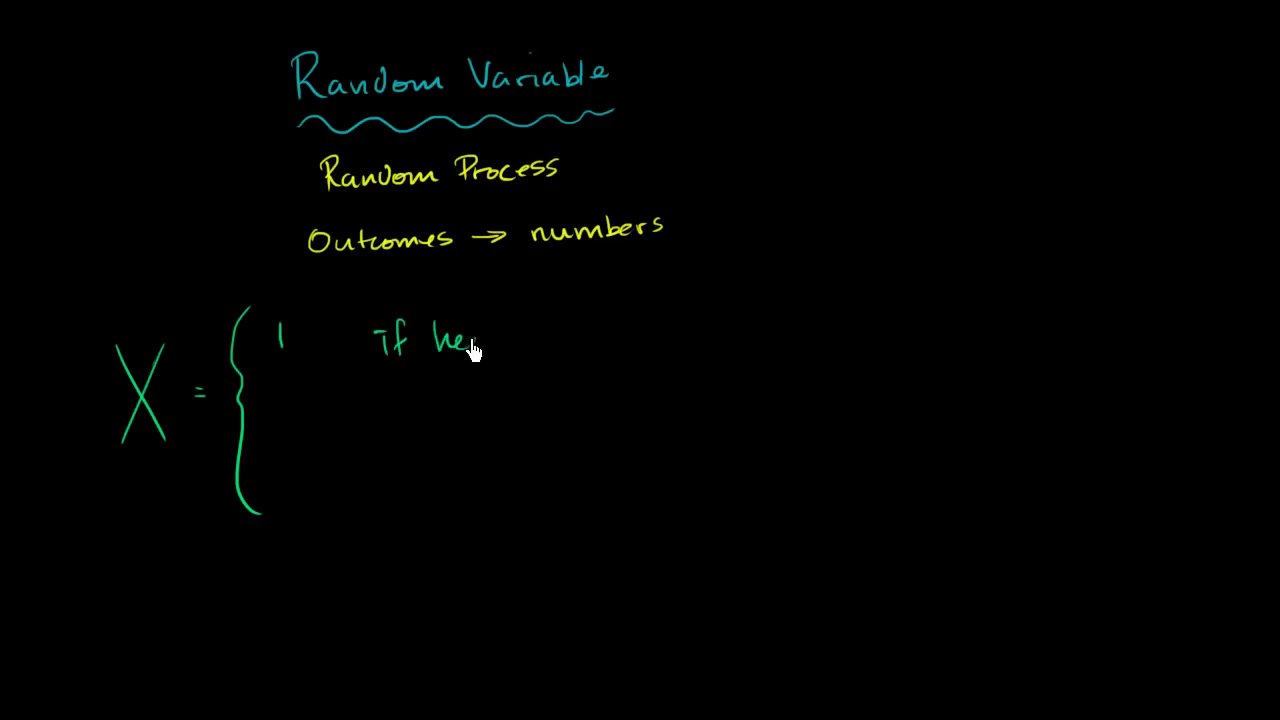 Random Variable
Random Process
Outcomes → numbers
X = { 1 if he